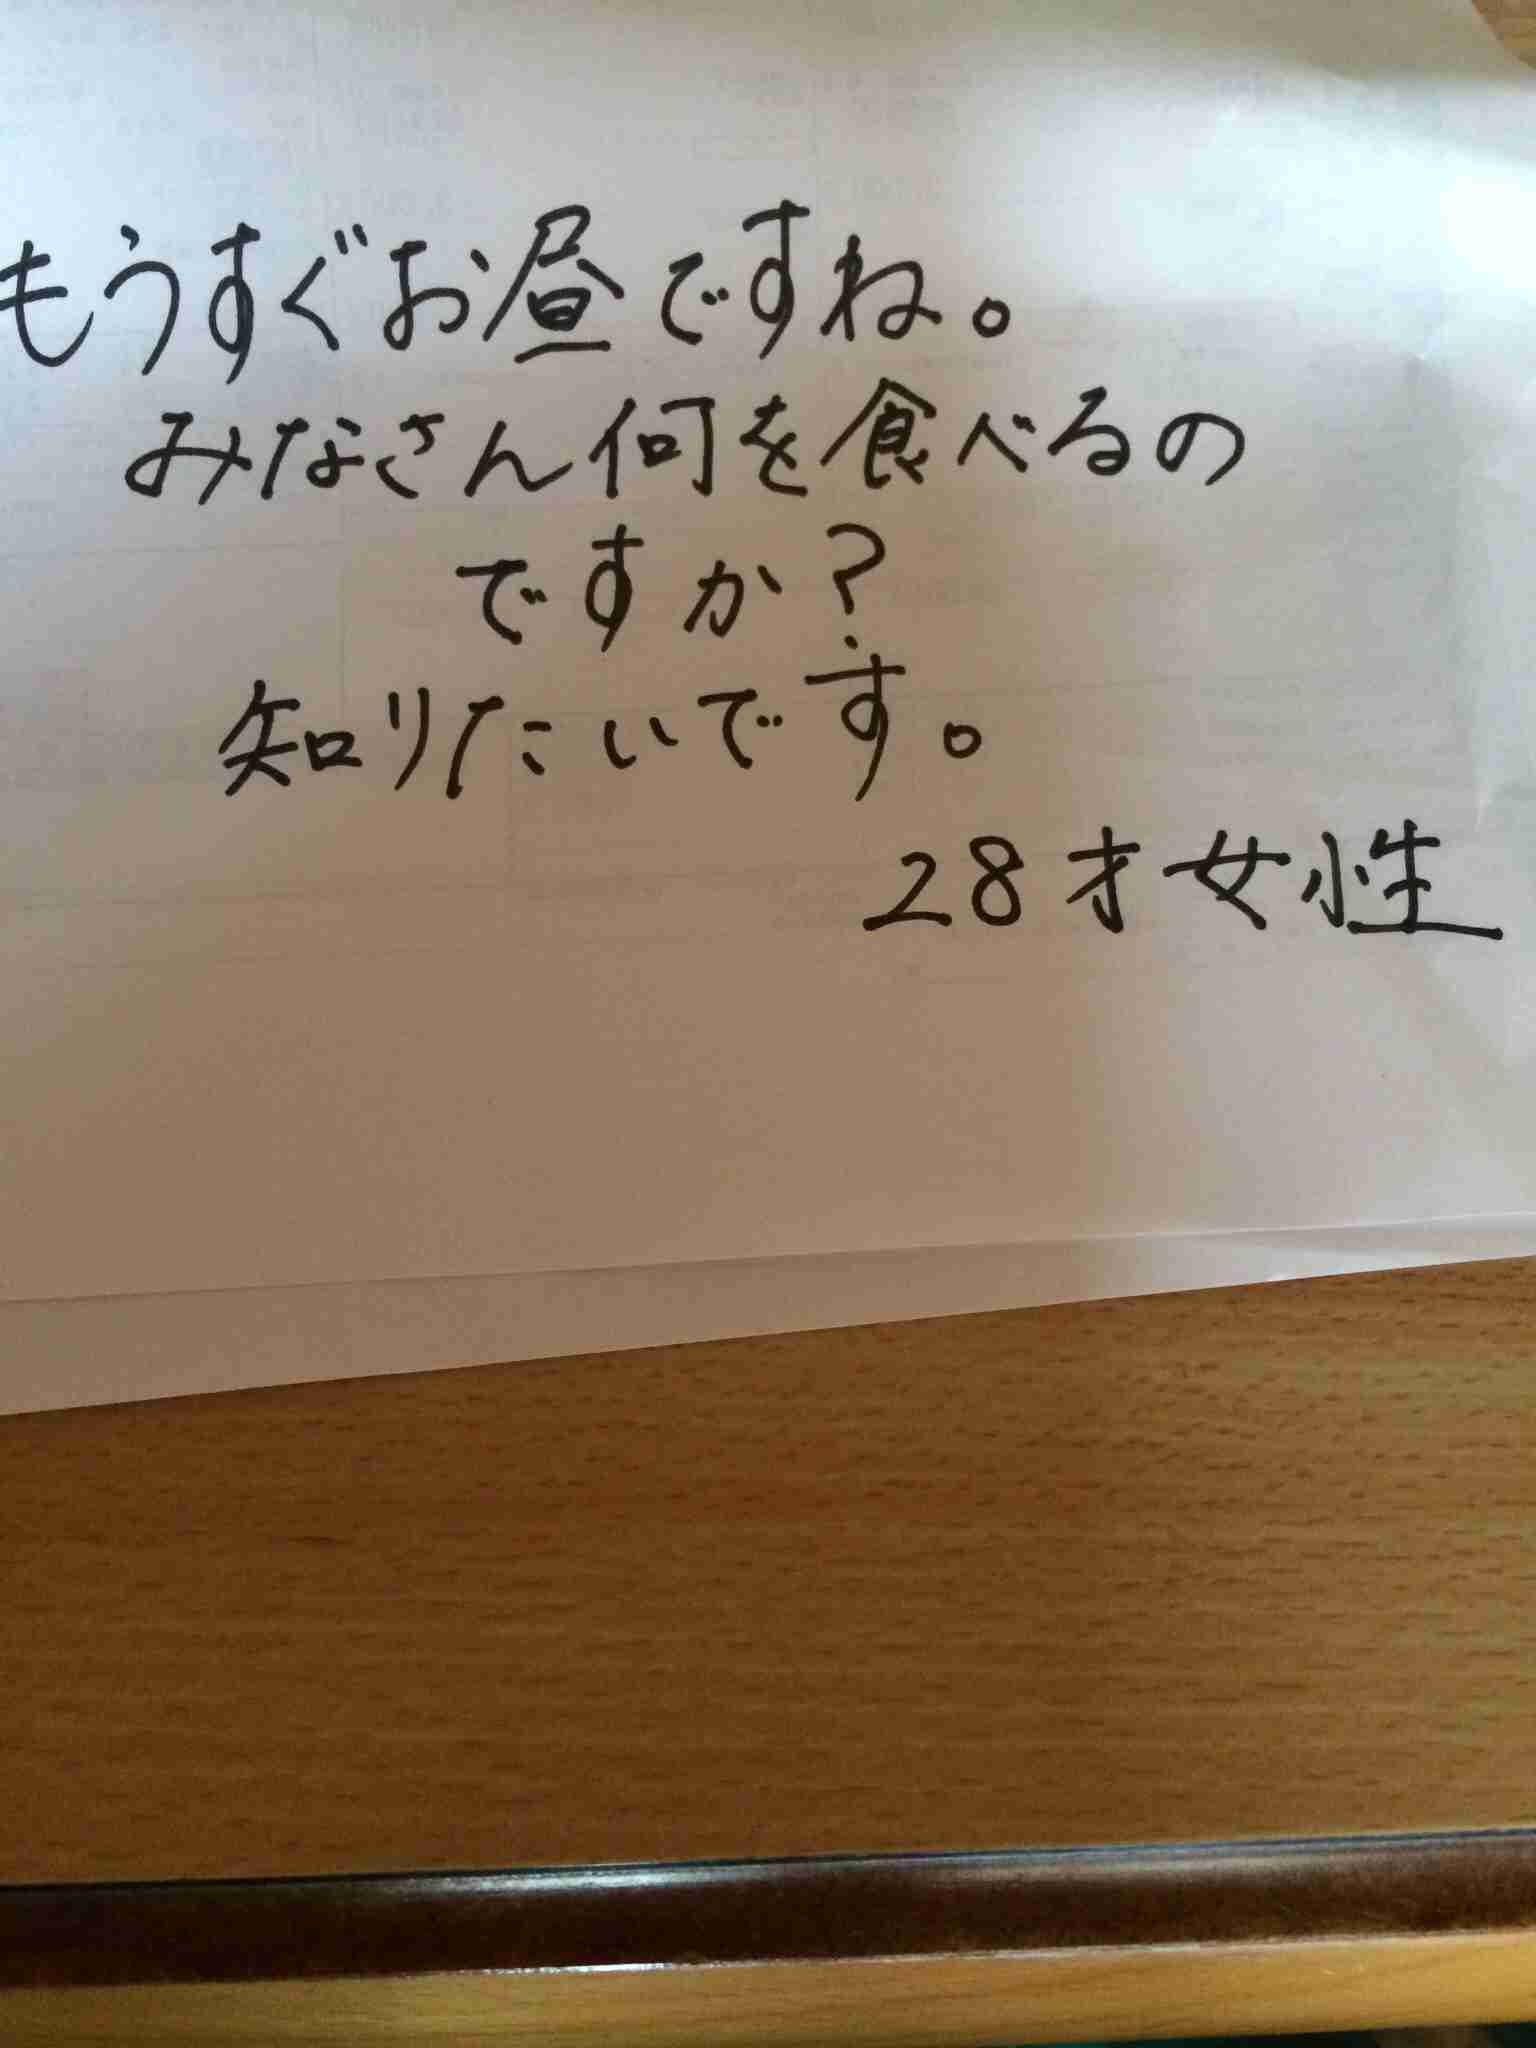 もうすぐお昼ですね。
みなさん何を食べるの
ですか?
知りたいです。
28才女性